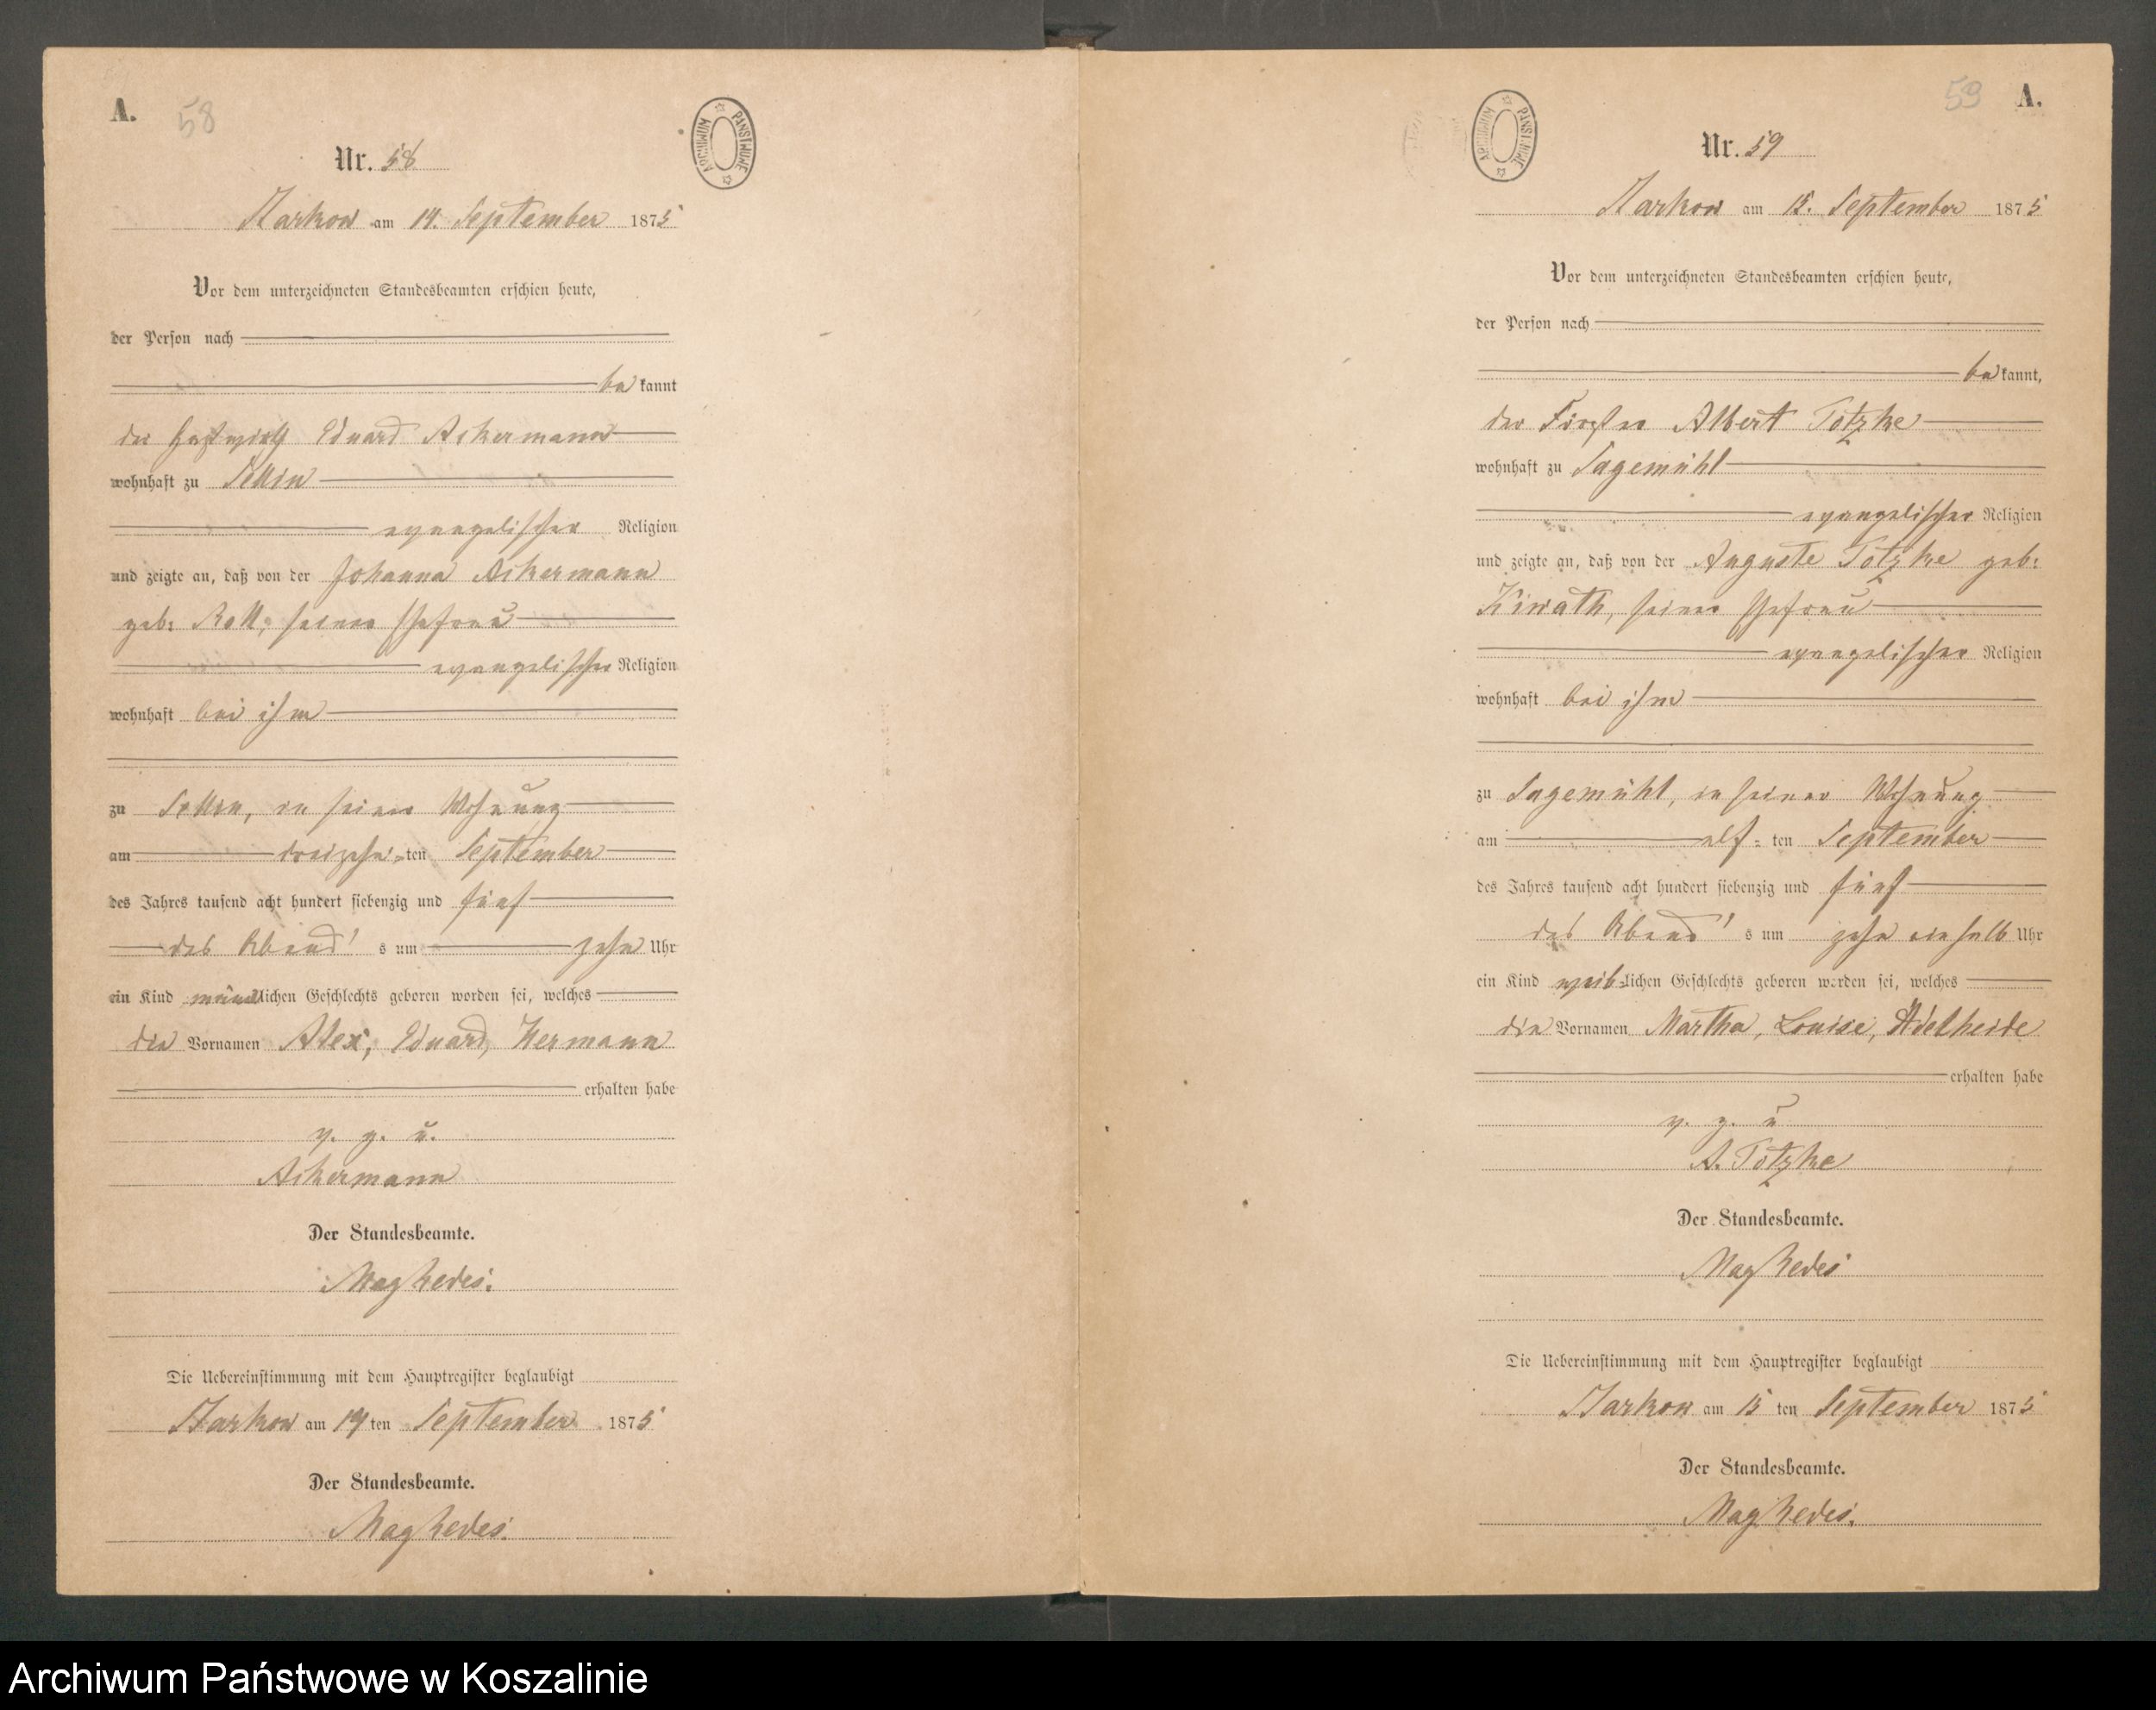 A. 58
ARCHIWUM PAŃSTWOWE
Nr. 58
Starkow am 14. September 1875
Vor dem unterzeichneten Standesbeamten erschien heute,
der Person nach
be kannt
der Gastwirth Eduard Ackermann
wohnhaft zu Sellin
evangelischer Religion
und zeigte an, daß von der Johanna Ackermann
geb: Roll, seiner Ehefrau
evangelischer Religion
wohnhaft bei ihm
zu Sellin, in seiner Wohnung
am dreizehn-ten September
des Jahres tausend acht hundert siebenzig und fünf
des Abend's um zehn Uhr
ein Kind männlichen Geschlechts geboren worden sei, welches
die Vornamen Alex, Eduard, Hermann
erhalten habe
v. g. u.
Ackermann
Der Standesbeamte.
Die Uebereinstimmung mit dem Hauptregister beglaubigt
Starkow am 14 ten September 1875
Der Standesbeamte.
59 A.
ARCHIWUM PAŃSTWOWE
Nr. 59
Starkow am 15. September 1875
Vor dem unterzeichneten Standesbeamten erschien heute,
der Person nach
be kannt,
der Albert Totzke
wohnhaft zu Sagemühl
evangelischer Religion
und zeigte an, daß von der Auguste Totzke geb:
Kiwath, seiner Ehefrau
evangelischer Religion
wohnhaft bei ihm
zu Sagemühl, in seiner Wohnung
am elf= ten September
des Jahres tausend acht hundert siebenzig und fünf
des Abend's um zehn ein halb Uhr
ein Kind weib=lichen Geschlechts geboren worden sei, welches
die Vornamen Martha, Louise, Adelheide
erhalten habe
v. g. u
A. Totzke
Der Standesbeamte.
Die Uebereinstimmung mit dem Hauptregister beglaubigt
Starkow am 15 ten September 1875
Der Standesbeamte.
Archiwum Państwowe w Koszalinie